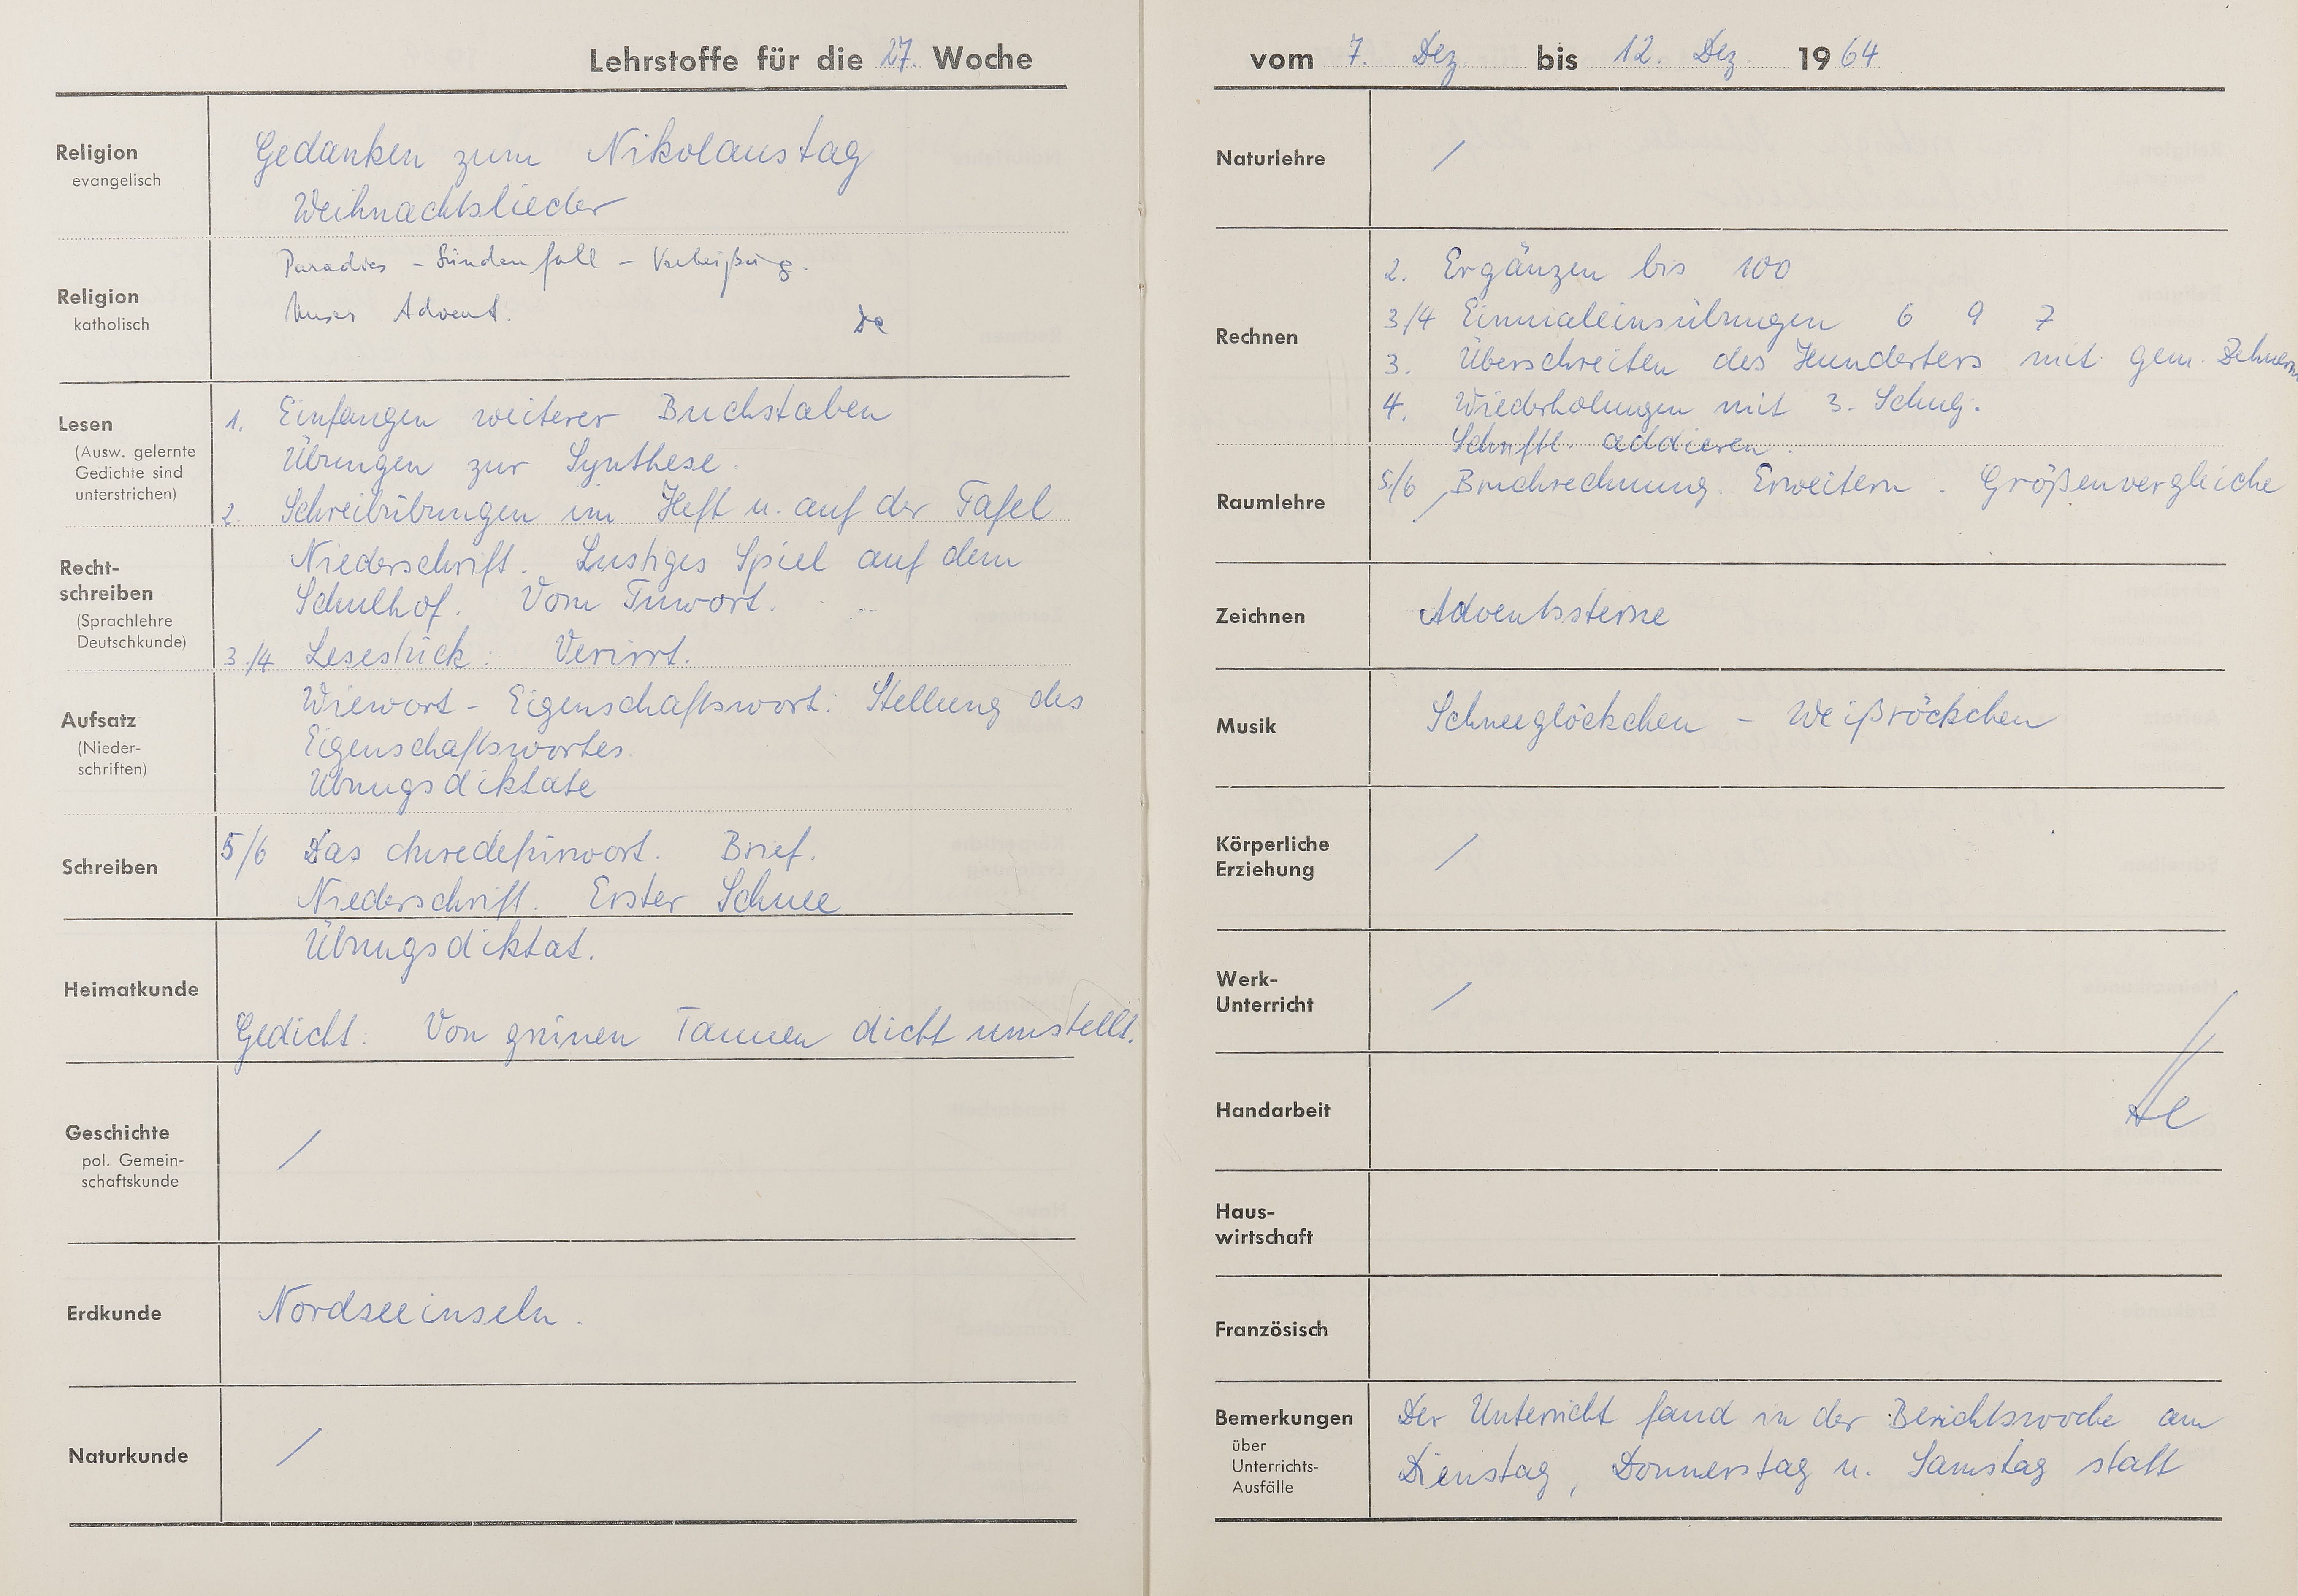 Lehrstoffe für die 27. Woche
Religion
evangelisch
Gedanken zum Nikolaustag
Weihnachtslieder
Religion
katholisch
Paradies – Sündenfall – Verheißung.
Unser Advent.
Lesen
(Ausw. gelernte
Gedichte sind
unterstrichen)
1. Einfangen weiterer Buchstaben
Übungen zur Synthese.
2. Schreibübungen im Heft u. auf der Tafel
Recht-
schreiben
(Sprachlehre
Deutschkunde)
Niederschrift. Lustiges Spiel auf dem
Schulhof. Vom Tuwort.
3./4 Lesestück: Verirrt.
Aufsatz
(Nieder-
schriften)
Wiewort – Eigenschaftswort: Stellung des
Eigenschaftswortes.
Übungsdiktate
Schreiben
5/6 Das Anredefürwort. Brief.
Niederschrift. Erster Schnee
Übungsdiktat.
Heimatkunde
Gedicht: Von grünen Tannen dicht umstellt.
Geschichte
pol. Gemein-
schaftskunde
/
Erdkunde
Nordseeinseln.
Naturkunde
/
vom 7. Dez. bis 12. Dez. 1964
Naturlehre
/
Rechnen
2. Ergänzen bis 100
3/4 Einmaleinsübungen 6 9 7
3. Überschreiten des Hunderters mit gem. Zehnern
4. Wiederholungen mit 3. Schulj.
Schriftl. addieren.
Raumlehre
5/6 Bruchrechnung. Erweitern. Größenvergleiche
/
Zeichnen
Adventssterne
Musik
Schneeglöckchen – Weißröckchen
Körperliche
Erziehung
/
Werk-
Unterricht
/
Handarbeit
Haus-
wirtschaft
Französisch
Bemerkungen
über
Unterrichts-
Ausfälle
Der Unterricht fand in der Berichtswoche am
Dienstag, Donnerstag u. Samstag statt